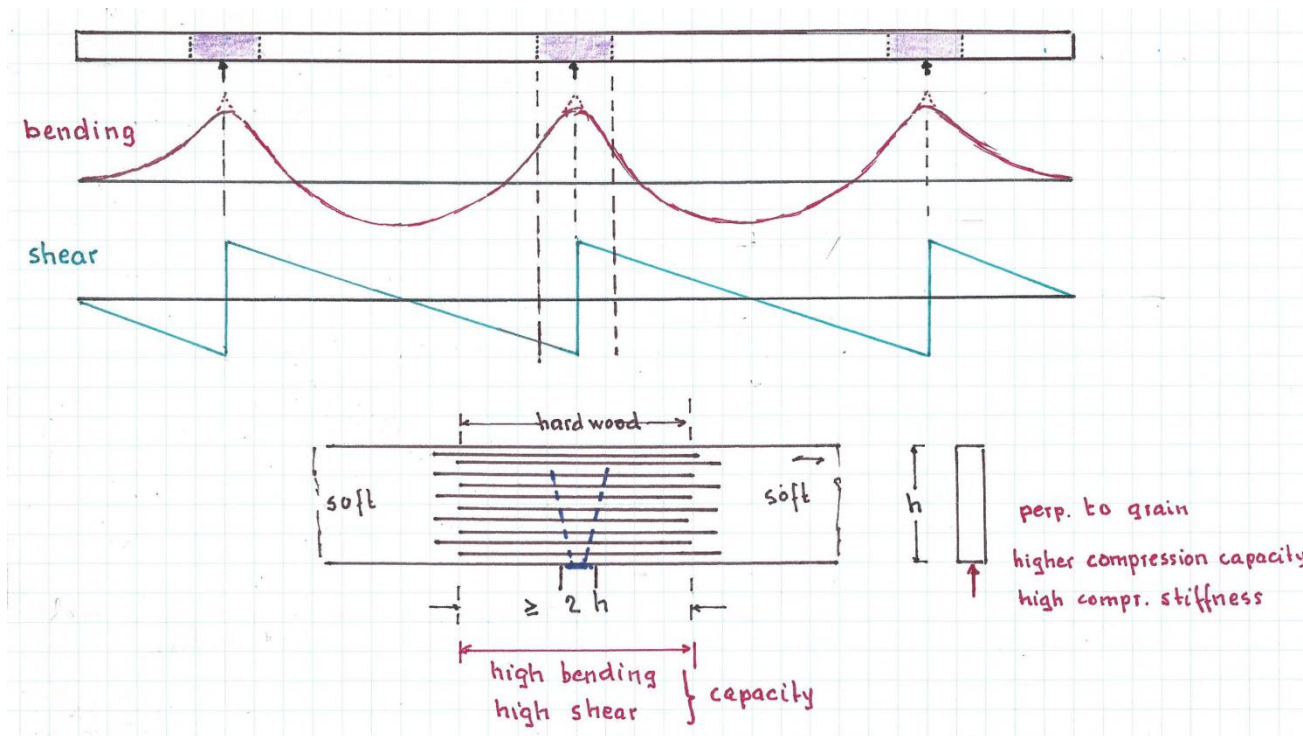 bending
shear
hard wood
soft
soft
h
≥ 2 h
perp. to grain
higher compression capacity
high compr. stiffness
high bending
high shear
capacity